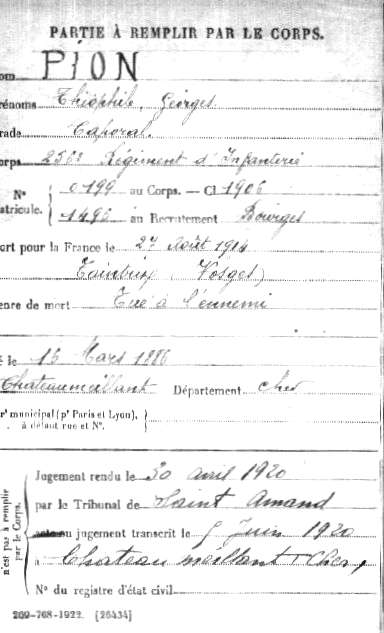 PARTIE À REMPLIR PAR LE CORPS.
om PION
rénoms Théophile, Georges
rade Caporal
orps 256e Régiment d'Infanterie
N° 0199 au Corps. — Cl 1906
atricule. 1492 au Recrutement Bourges
ort pour la France le 27 Août 1914
Taintrux (Vosges)
enre de mort Tué à l'ennemi
é le 15 Mars 1886
Chateaumeillant Département Cher
r' municipal (p' Paris et Lyon),
à défaut rue et N°.
n'est pas à remplir
par le Corps.
Jugement rendu le 30 avril 1920
par le Tribunal de Saint Amand
acte ou jugement transcrit le 5 Juin 1920
à Chateaumeillant (Cher)
N° du registre d'état civil
269-708-1922. [26434]